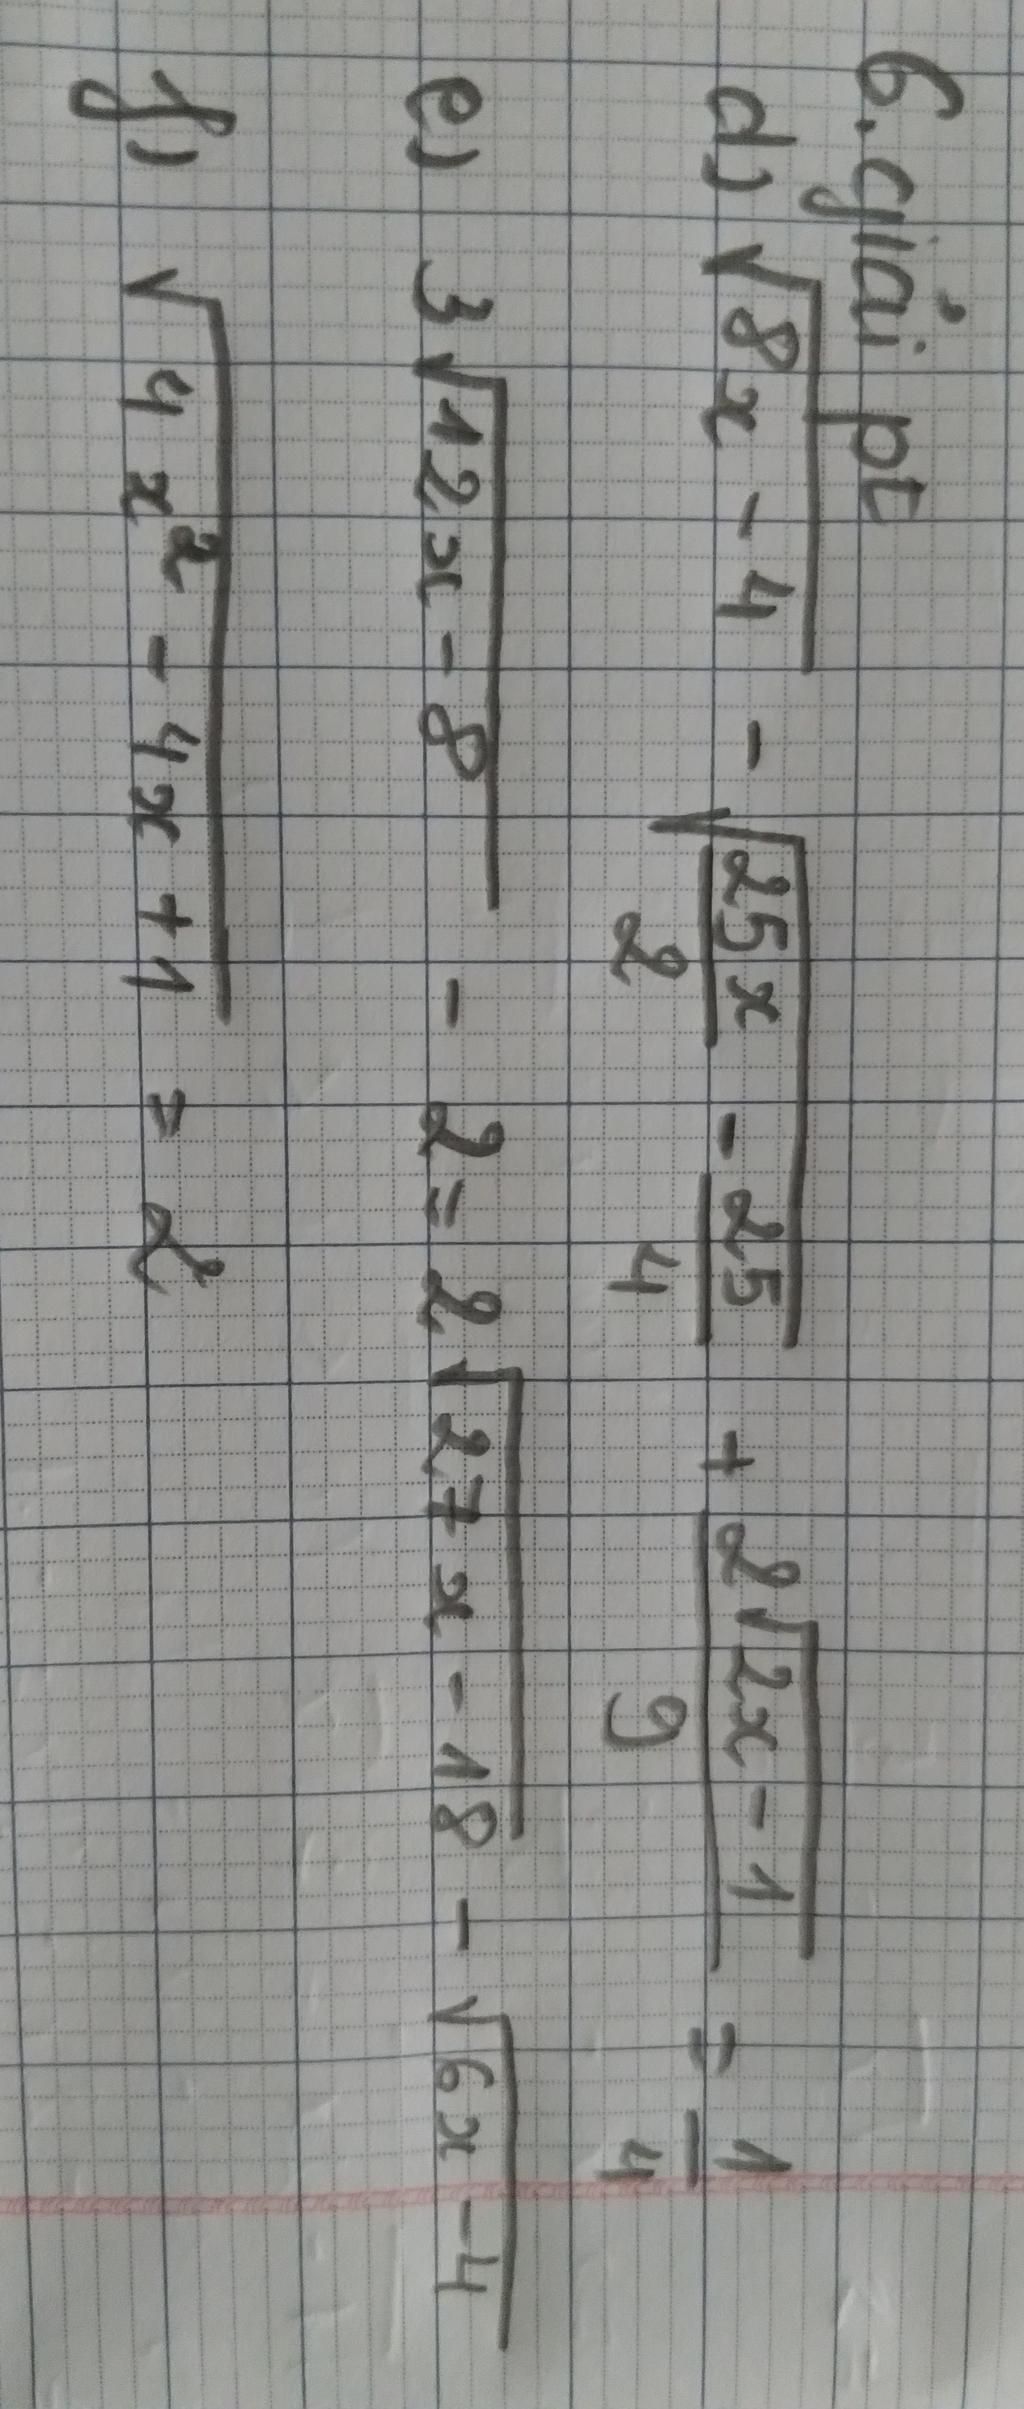 6. giải pt
d) √(8x - 4) - √(25x/2 - 25/4) + 2√(2x - 1)/9 = 1/4
e) 3√(12x - 8) - 2 = 2√(27x - 18) - √(6x - 4)
f) √(4x² - 4x + 1) = 2